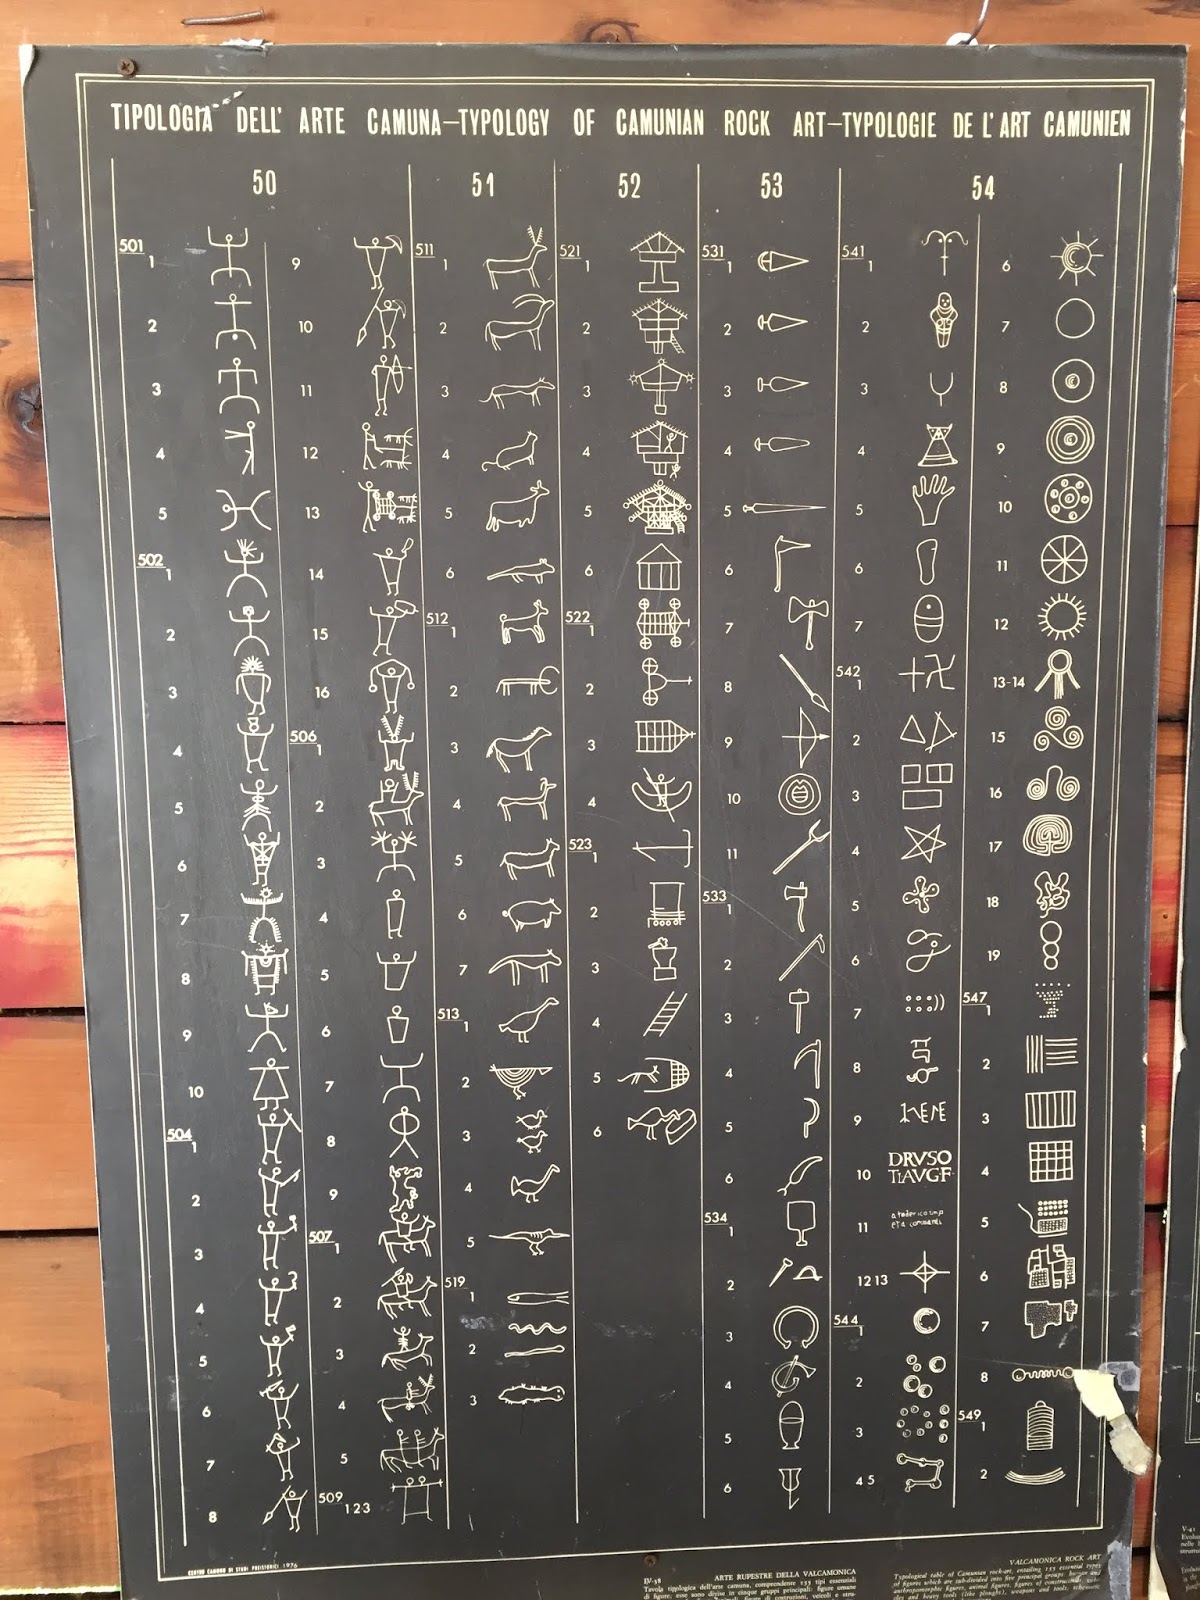 TIPOLOGIA DELL' ARTE CAMUNA—TYPOLOGY OF CAMUNIAN ROCK ART—TYPOLOGIE DE L'ART CAMUNIEN
50 51 52 53 54
501
1
2
3
4
5
502
1
2
3
4
5
6
7
8
9
10
504
1
2
3
4
5
6
7
8
9
10
11
12
13
14
15
16
506
1
2
3
4
5
6
7
8
9
507
1
2
3
4
5
509
1 2 3
511
1
2
3
4
5
6
512
1
2
3
4
5
6
7
513
1
2
3
4
5
519
1
2
3
521
1
2
3
4
5
6
522
1
2
3
4
523
1
2
3
4
5
6
531
1
2
3
4
5
6
7
8
9
10
11
533
1
2
3
4
5
6
534
1
2
3
4
5
6
541
1
2
3
4
5
6
7
542
1
2
3
4
5
6
7
8
9
10
DRVSO
TIAVGF
11
12 13
544
1
2
3
4 5
6
7
8
9
10
11
12
13-14
15
16
17
18
19
547
1
2
3
4
5
6
7
8
549
1
2
CENTRO CAMUNO DI STUDI PREISTORICI 1976
IV-58
ARTE RUPESTRE DELLA VALCAMONICA
Tavola tipologica dell'arte camuna, comprendente 155 tipi essenziali
VALCAMONICA ROCK ART
Typological table of Camunian rock-art, entailing 155 essential types
of figures which are sub-divided into five principal groups: human and